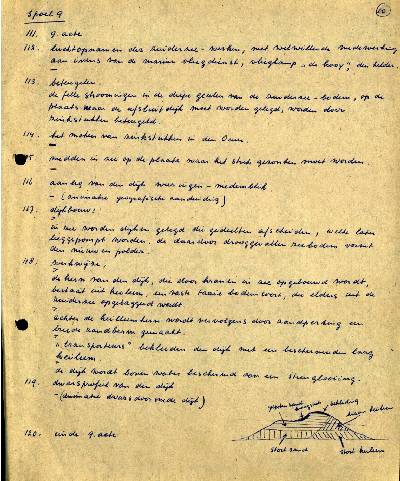 Spoel 9
(20.)
111. 9. acte
112. luchtopnamen der zuiderzee-werken, met welwillende medewerking
aan van de marine vliegdienst, vliegkamp "de kooy", den helder.
113. beteugelen.
de felle stroomingen in de diepe geulen van de zuiderzee-bodem, op de
plaats waar de afsluitdijk moet worden gelegd, worden door
zinkstukken beteugeld.
114. het maken van zinkstukken in den Oever.
115 midden in zee op de plaats waar het stuk gezonken moet worden.
116 aanleg van den dijk wieringen-medemblik.
- (animatie geografische aanduiding)
117. dijkbouw!
in zee worden dijken gelegd die gedeelten afscheiden, welke later
leeggepompt worden. de daardoor drooggevallen zeebodem vormt
den nieuwen polder.
118. werkwijze,
de kern van den dijk, die door kranen in zee opgebouwd wordt,
bestaat uit keileem, een vaste taaie bodemsoort, die elders uit de
zuiderzee opgebaggerd wordt.
achter de keileemkern wordt vervolgens door zandpersing een
breede zandberm gemaakt.
"transporteurs" bekleeden den dijk met een beschermende laag
keileem
de dijk wordt boven water beschermd door een steenglooiing.
119. dwarsprofiel van den dijk
- (animatie dwars doorsnede dijk)
zand bekleeding
keileem
stort zand stort keileem
120. einde 9. acte